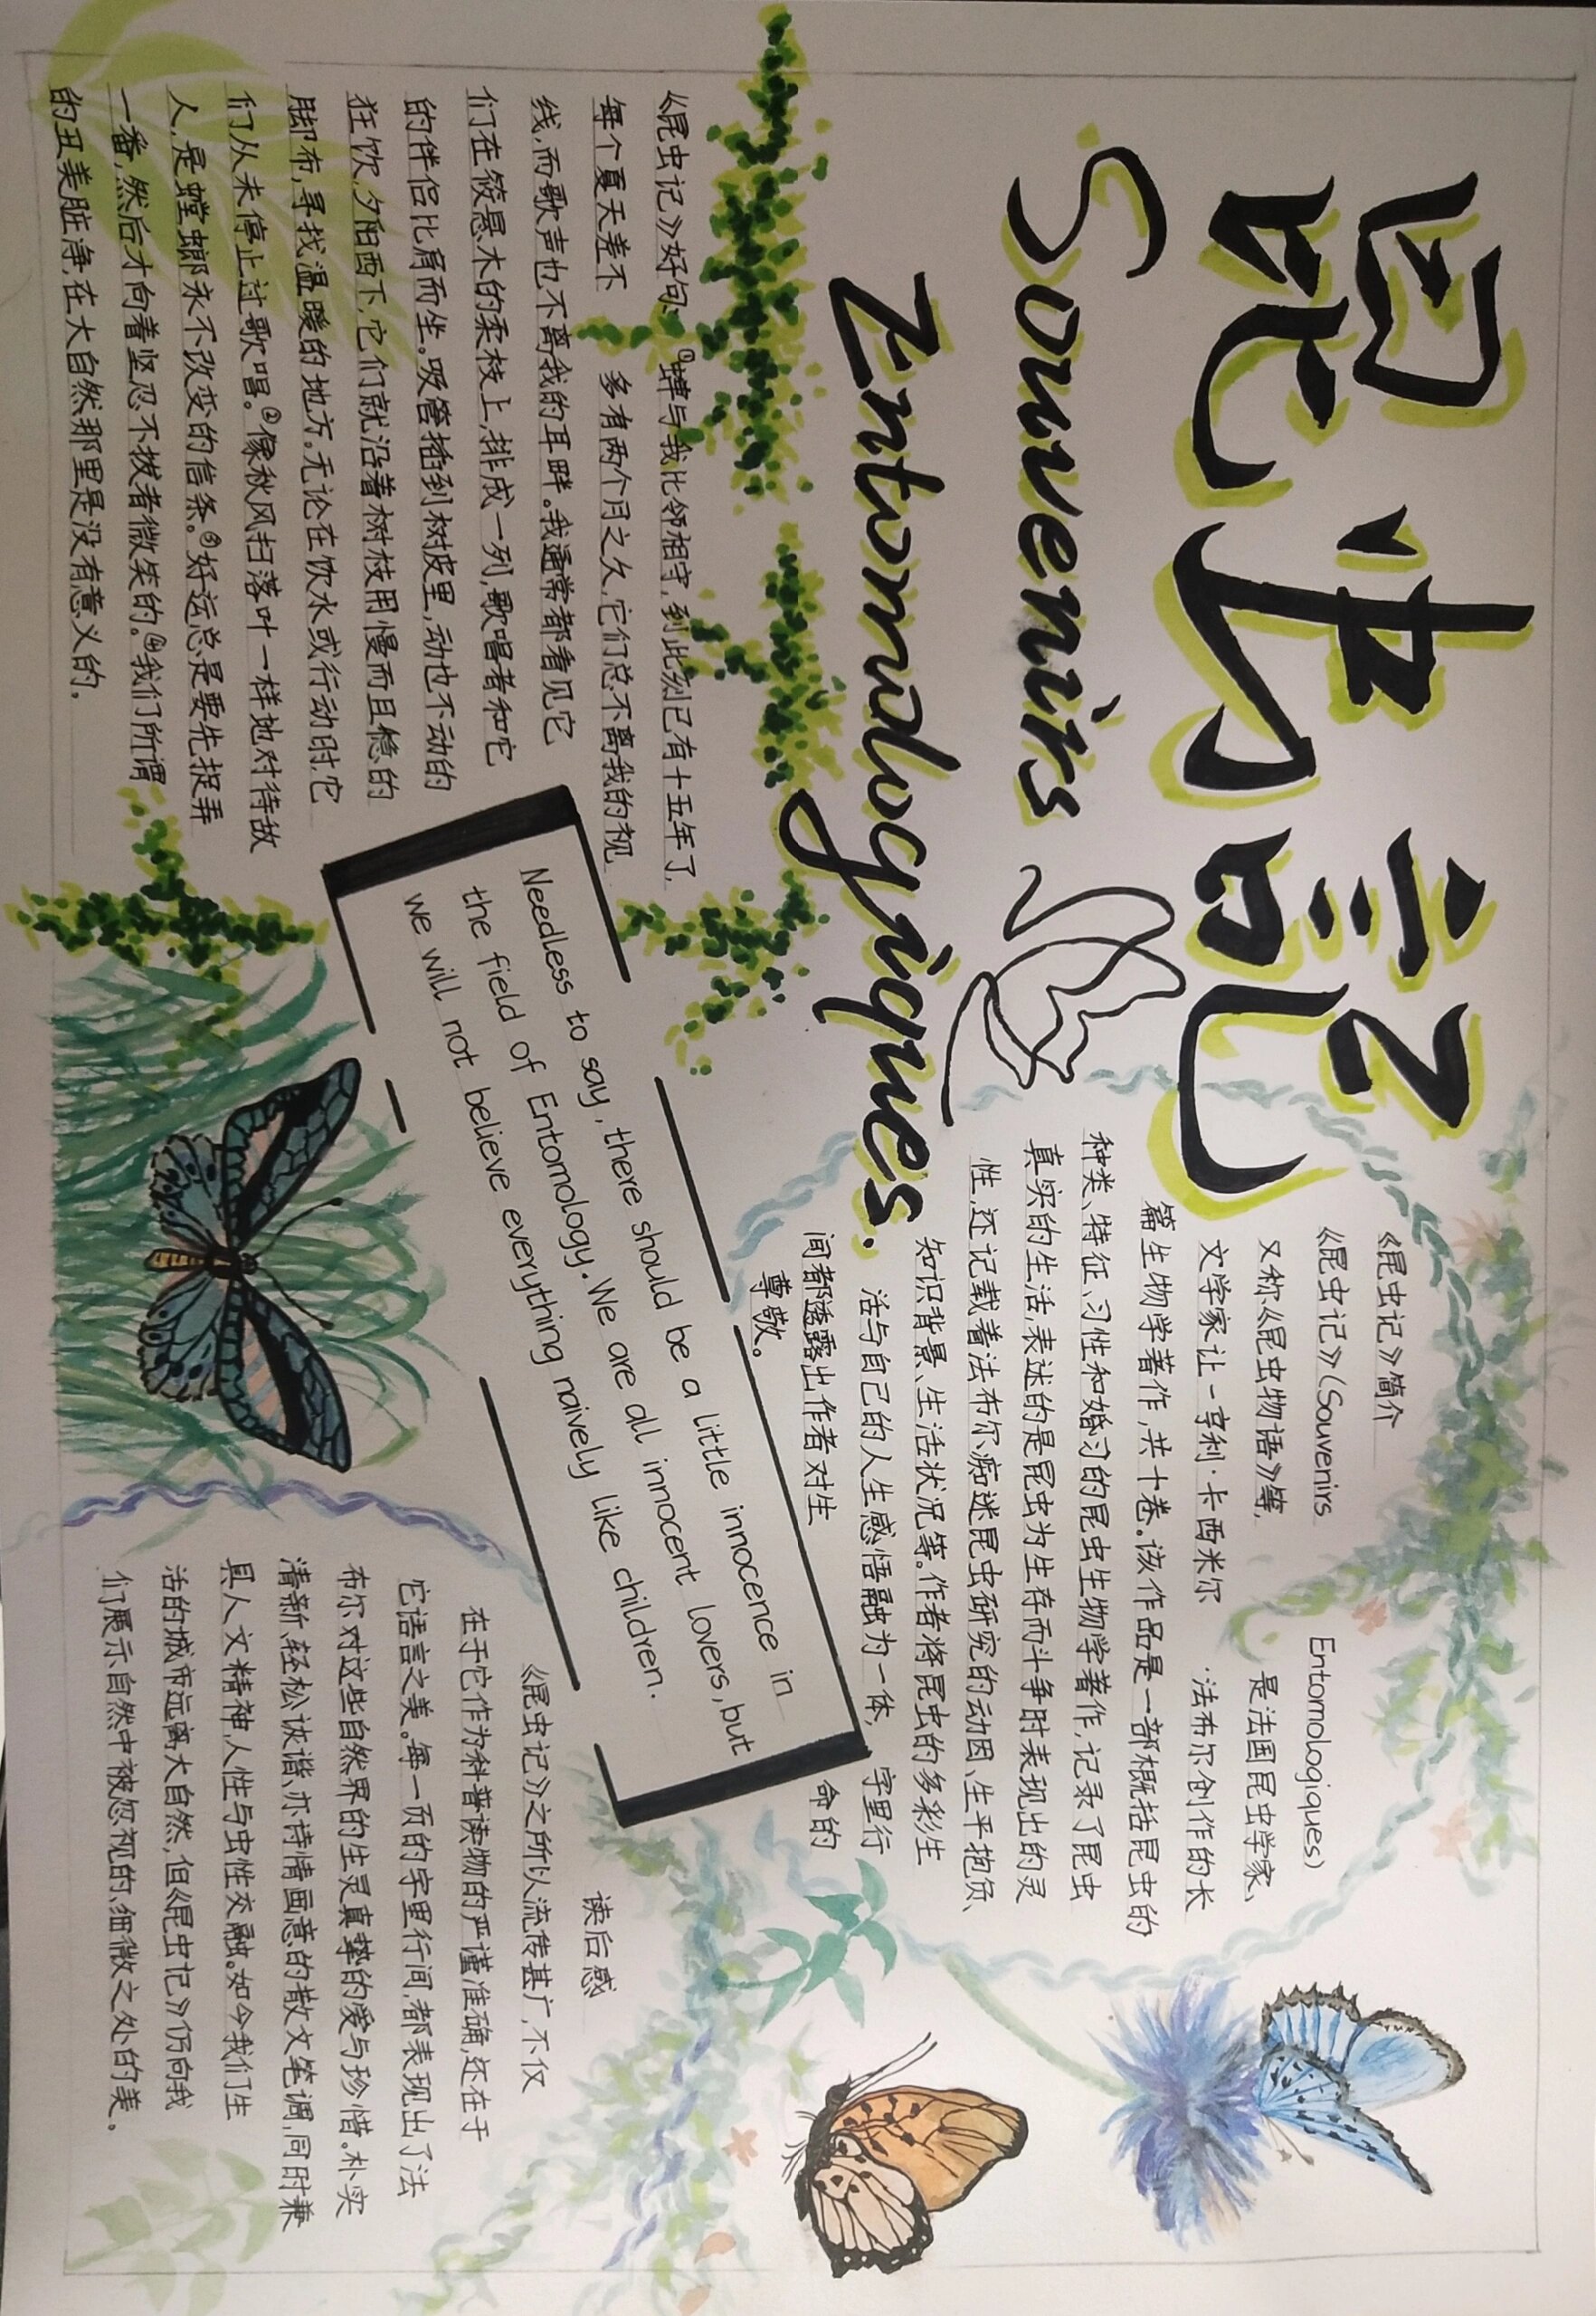 昆虫记
Souvenirs
Entomologiques.
《昆虫记》简介
《昆虫记》(Souvenirs Entomologiques)
又称《昆虫物语》等, 是法国昆虫学家、
文学家让-亨利·卡西米尔·法布尔创作的长
篇生物学著作,共十卷。该作品是一部概括昆虫的
种类、特征、习性和婚习的昆虫生物学著作,记录了昆虫
真实的生活,表述的是昆虫为生存而斗争时表现出的灵
性,还记载着法布尔痴迷昆虫研究的动因、生平抱负、
知识背景、生活状况等。作者将昆虫的多彩生
活与自己的人生感悟融为一体, 字里行
间都透露出作者对生 命的
尊敬。
《昆虫记》好句:①蝉与我比邻相守,到此刻已有十五年了,
每个夏天差不 多有两个月之久,它们总不离我的视
线,而歌声也不离我的耳畔。我通常都看见它
们在筱悬木的柔枝上,排成一列,歌唱者和它
的伴侣比肩而坐。吸管插到树皮里,动也不动的
狂饮,夕阳西下,它们就沿着树枝用慢而且稳的
脚布,寻找温暖的地方。无论在饮水或行动时,它
们从未停止过歌唱。②像秋风扫落叶一样地对待敌
人,是螳螂永不改变的信条。③好运总是要先捉弄
一番,然后才向着坚忍不拔者微笑的。④我们所谓
的丑美脏净,在大自然那里是没有意义的。
Needless to say, there should be a little innocence in
the field of Entomology. We are all innocent lovers, but
we will not believe everything naively like children.
读后感
《昆虫记》之所以流传甚广,不仅
在于它作为科普读物的严谨准确,还在于
它语言之美。每一页的字里行间,都表现出了法
布尔对这些自然界的生灵真挚的爱与珍惜。朴实
清新、轻松诙谐、亦诗情画意的散文笔调,同时兼
具人文精神,人性与虫性交融。如今我们生
活的城市远离大自然,但《昆虫记》仍向我
们展示自然中被忽视的、细微之处的美。